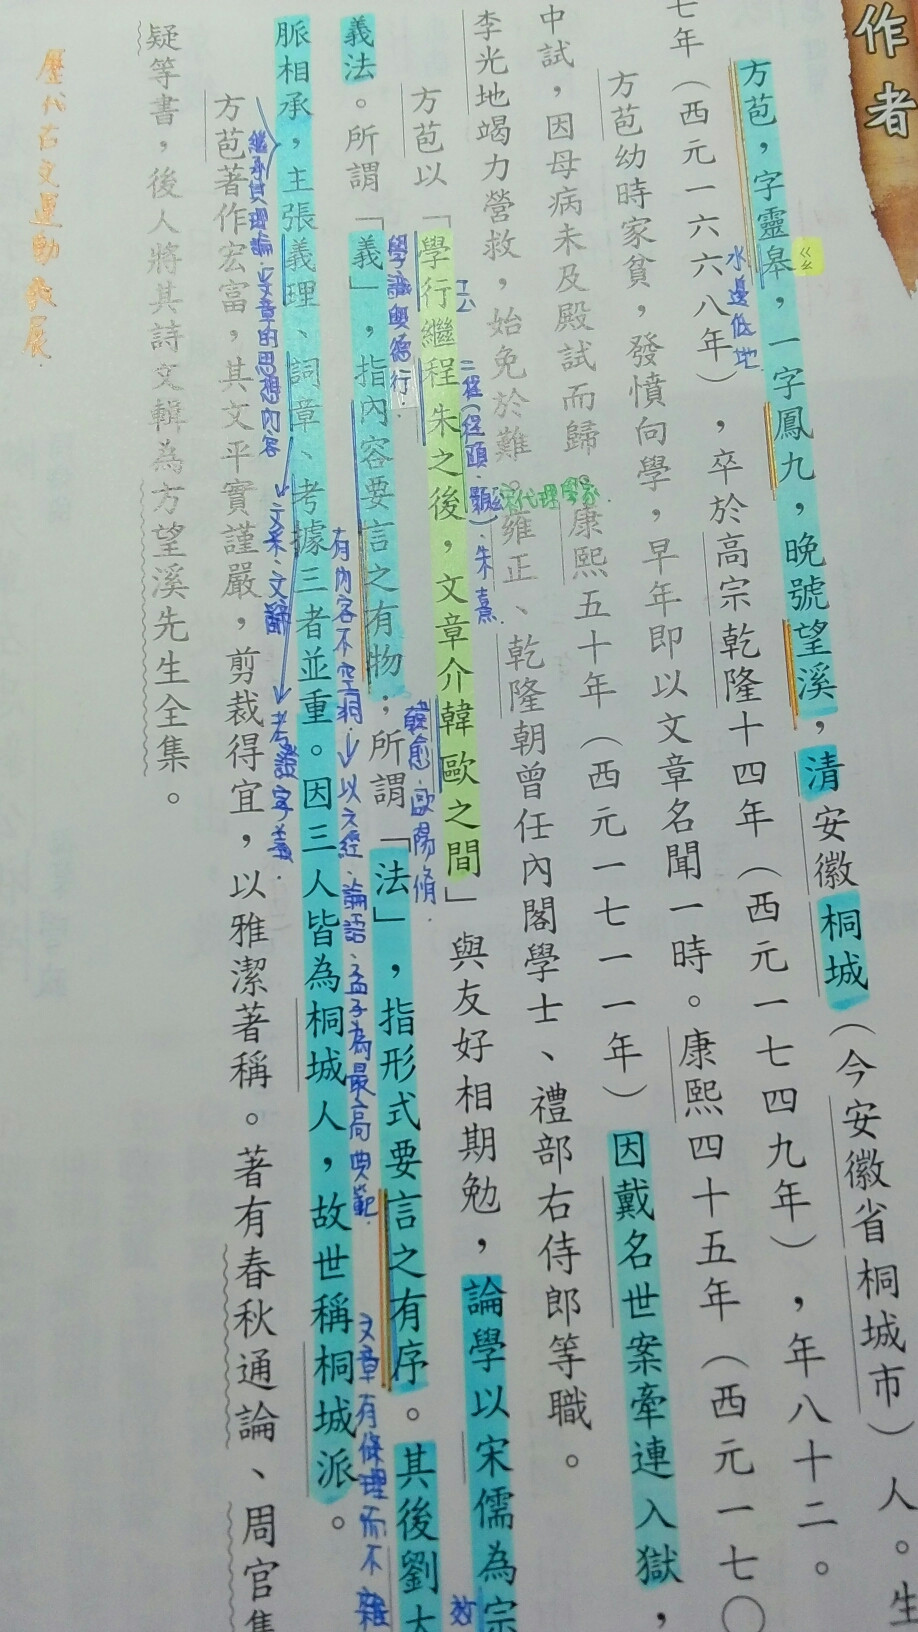 作者
方苞，字靈皋，一字鳳九，晚號望溪，清安徽桐城（今安徽省桐城市）人。生
ㄍㄠ
水邊低地
七年（西元一六六八年），卒於高宗乾隆十四年（西元一七四九年），年八十二。
方苞幼時家貧，發憤向學，早年即以文章名聞一時。康熙四十五年（西元一七〇
中試，因母病未及殿試而歸。康熙五十年（西元一七一一年）因戴名世案牽連入獄，
李光地竭力營救，始免於難。雍正、乾隆朝曾任內閣學士、禮部右侍郎等職。
二程（程頤、顥）、朱熹
宋代理學家
ㄒㄧㄥ
方苞以「學行繼程朱之後，文章介韓歐之間」與友好相期勉，論學以宋儒為宗
學識與德行
韓愈、歐陽脩
效
義法。所謂「義」，指內容要言之有物；所謂「法」，指形式要言之有序。其後劉大
有內容不空洞→以六經、論語、孟子為最高典範
文章有條理而不雜
脈相承，主張義理、詞章、考據三者並重。因三人皆為桐城人，故世稱桐城派。
繼承其理論
文章的思想內容
文采、文辭
考證字義
方苞著作宏富，其文平實謹嚴，剪裁得宜，以雅潔著稱。著有春秋通論、周官集
疑等書，後人將其詩文輯為方望溪先生全集。
歷代古文運動發展